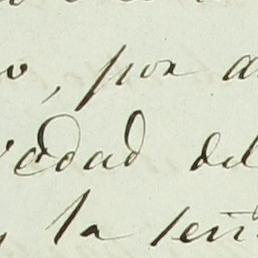 o, por a
vedad del
, la señ